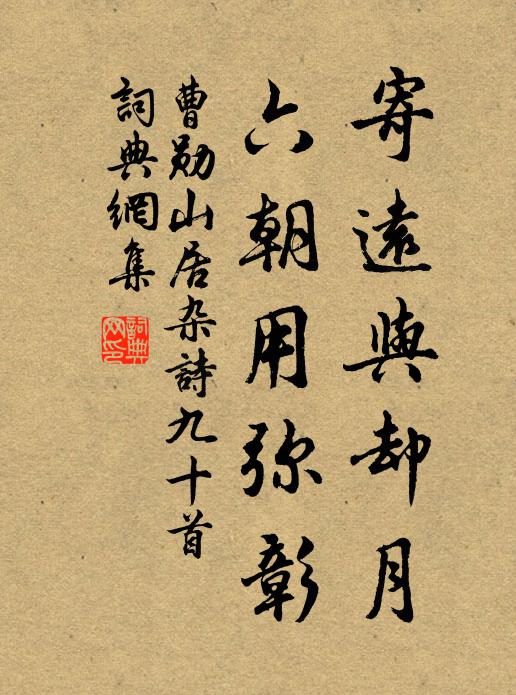 寄遠與却月
六朝用弥彰
曹勋山居杂詩九十首
詞典網集
詞典
网印